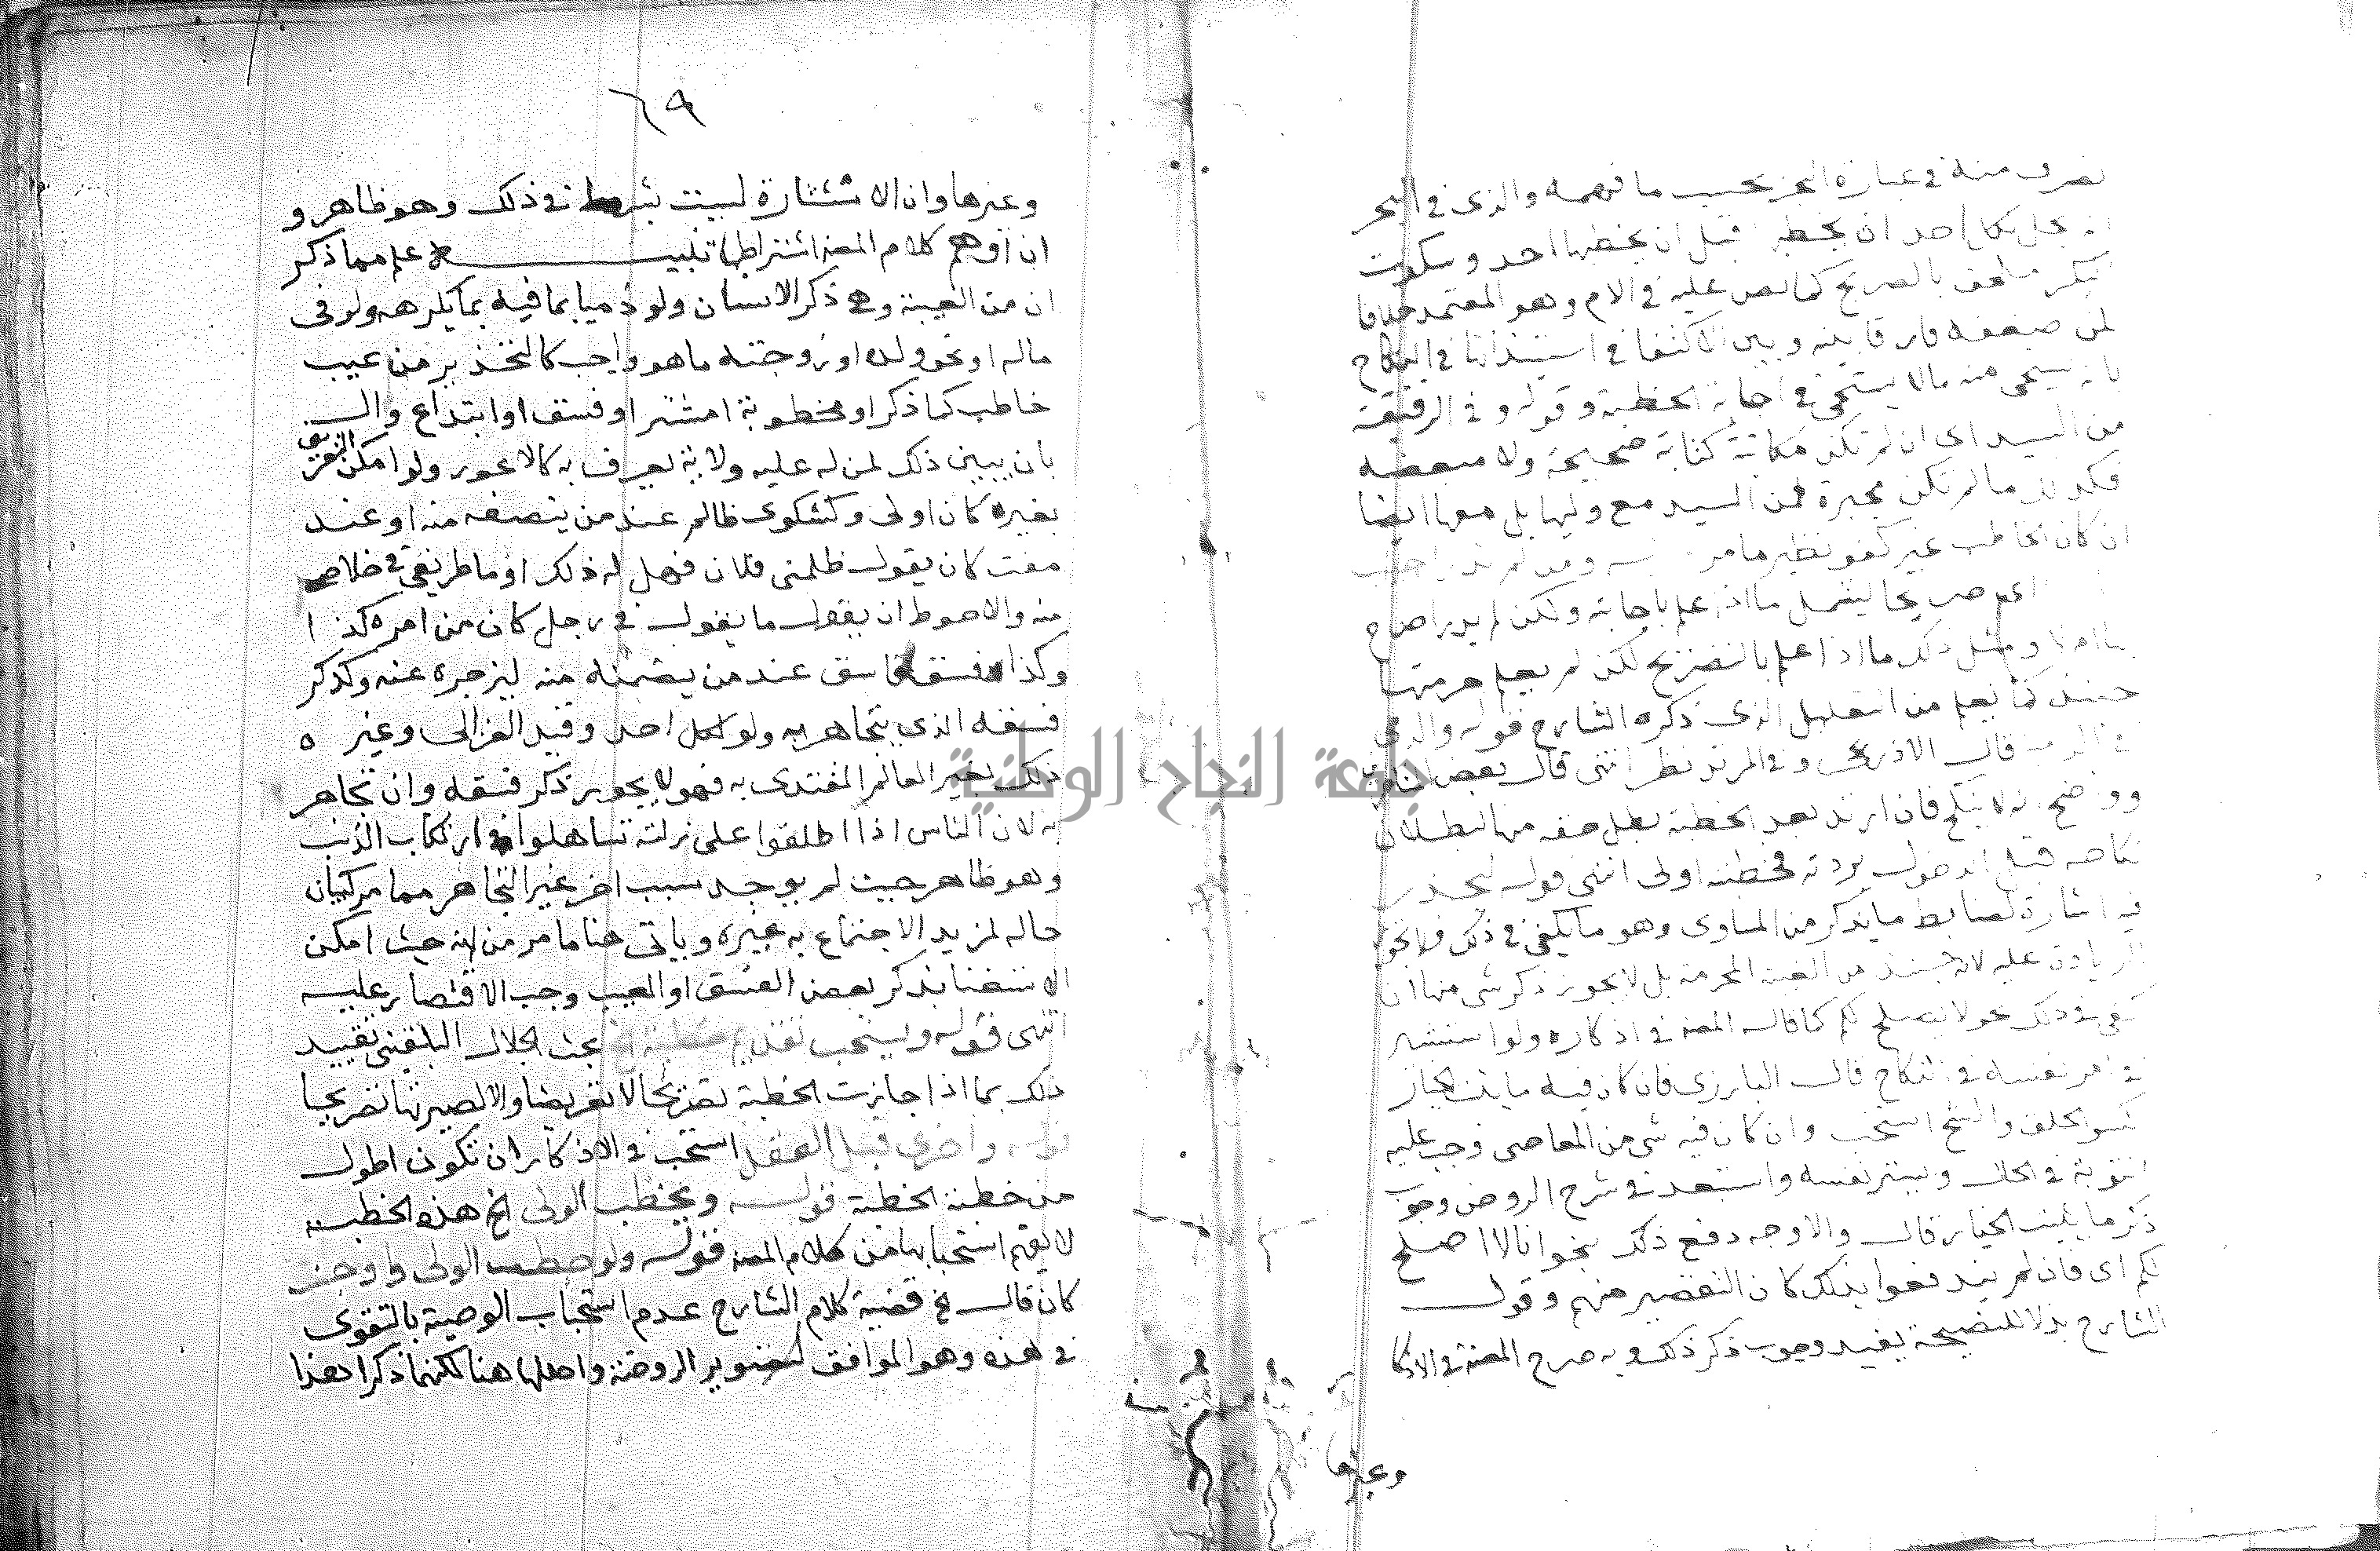 تصرف منه في عبارة البحر بحسب ما فهمه والذي في البحر
يحل لكل احد ان يخطب قبل ان يخطبها احد وسكوت
البكر ملحق بالصريح كما نص عليه في الام وهو المعتمد خلافا
لمن ضعفه فارقا بينه وبين الاكتفا في استيذانها في النكاح
بانه يستحى منه مالا يستحى في اجابة الخطبة وقوله وفي الرقيقة
من السيد اى ان لم تكن مكاتبة كتابة صحيحة ولا مبعضه
فكون ما لم تكن مجبرة فمن السيد مع وليها بل معها ايضا
ان كان الخاطب غير كفو نظير ما مر
صريحا يشمل ما اذا علم باجابته ولكن لم يدر اصرح
بها ام لا ومثل ذلك ما اذا علم بالتصريح لكن لم يعلم حرمتها
حينئذ كما يعلم من التعليل الذى ذكره الشارح قوله والذمي
قال الاذرعى وفي المرتد نظر انتهى قال بعض
وواضح انه لا ينكح فان ارتد بعد الخطبة بطل حقه منها لبطلان
نكاحه قبل الدخول بردته فخطبته اولى انتهى قوله ليحذر
فيه اشارة لضابط ما يذكر من المساوى وهو ما يكفي في ذلك فلا تجوز
الزيادة عليه لانه حينئذ من الغيبة المحرمة بل لا يجوز ذكر شى منها ان
كفى في ذلك نحو لا يصلح لكم كما قاله المصنف في اذكاره ولو استشير
في امر نفسه في النكاح قال البارزى فان كان فيه ما يثبت الخيار
كسو الخلق والشح استحب وان كان فيه شى من المعاصى وجب عليه
التوبة في الحال ويستر نفسه واستبعد في شرح الروض وجوب
ذكر ما يثبت الخيار قال والاوجه دفع ذلك بنحو انا لا اصلح
لكم اى فان لم يندفعوا بذلك كان التقصير منهم وقول
الشارح بذلا للنصيحة يفيد وجوب ذكر ذلك وبه صرح المصنف في الاذكا
وغيرها
٦٩
وغيرها وان الاستشارة ليست بشرط في ذلك وهو ظاهر و
ان اوهم كلام المصنف اشتراطها تنبيه علم مما ذكر
ان من الغيبة وهى ذكر الانسان ولو ذميا بما فيه بما يكرهه ولو في
ماله او نحو ولده او زوجته ما هو واجب كالتحذير من عيب
خاطب كما ذكر او مخطوبة او مشتر او فسق او ابتداع وال
بان يبين ذلك لمن له عليه ولاية يعرف به كالاعور ولو امكن التعريف
بغيره كان اولى وكشكوى ظالم عند من ينصفه منه او عند
مفت كان يقول ظلمنى فلان فهل له ذلك او ما طريقي في خلاص
منه والاحوط ان يقول ما يقول في رجل كان من امره كذا
وكذا فسقه فاسق عند من يضمنه منه ليزجره عنه وكذكر
فسقه الذي يتجاهر به ولو لكل احد وقيد الغزالى وغيره
ذلك بغير العالم المقتدى به فهو لا يجوز ذكر فسقه وان تجاهر
به لان الناس اذا اطلقوا على زلته تساهلوا في ارتكاب الذنب
وهو ظاهر حيث لم يوجد سبب اخر غير التجاهر مما مر كبيان
حاله لمزيد الاجتماع به غيره وياتى هنا ما مر من انه حيث امكن
الاستغنا بذكر بعض الفسق او العيب وجب الاقتصار عليه
انتهى قوله ويستحب تقديم خطبة الخ بحث الجلال البلقينى تقييد
ذلك بما اذا جازت الخطبة تصريحا لا تعريضا والا لصيرتها تصريحا
قوله واخرى قبل العقد استحب في الاذكار ان تكون اطول
من خطبة الخطبة قوله ويخطب الولى الخ هذه الخطبة
لا يفهم استحبابها من كلام المصنف قوله ولو خطب الولى واوجب
كان قال الخ قضية كلام الشارح عدم استحباب الوصية بالتقوى
في هذه وهو الموافق لتصوير الروضة واصلها هنا لكنهما ذكرا بعدا
جامعة النجاح الوطنية